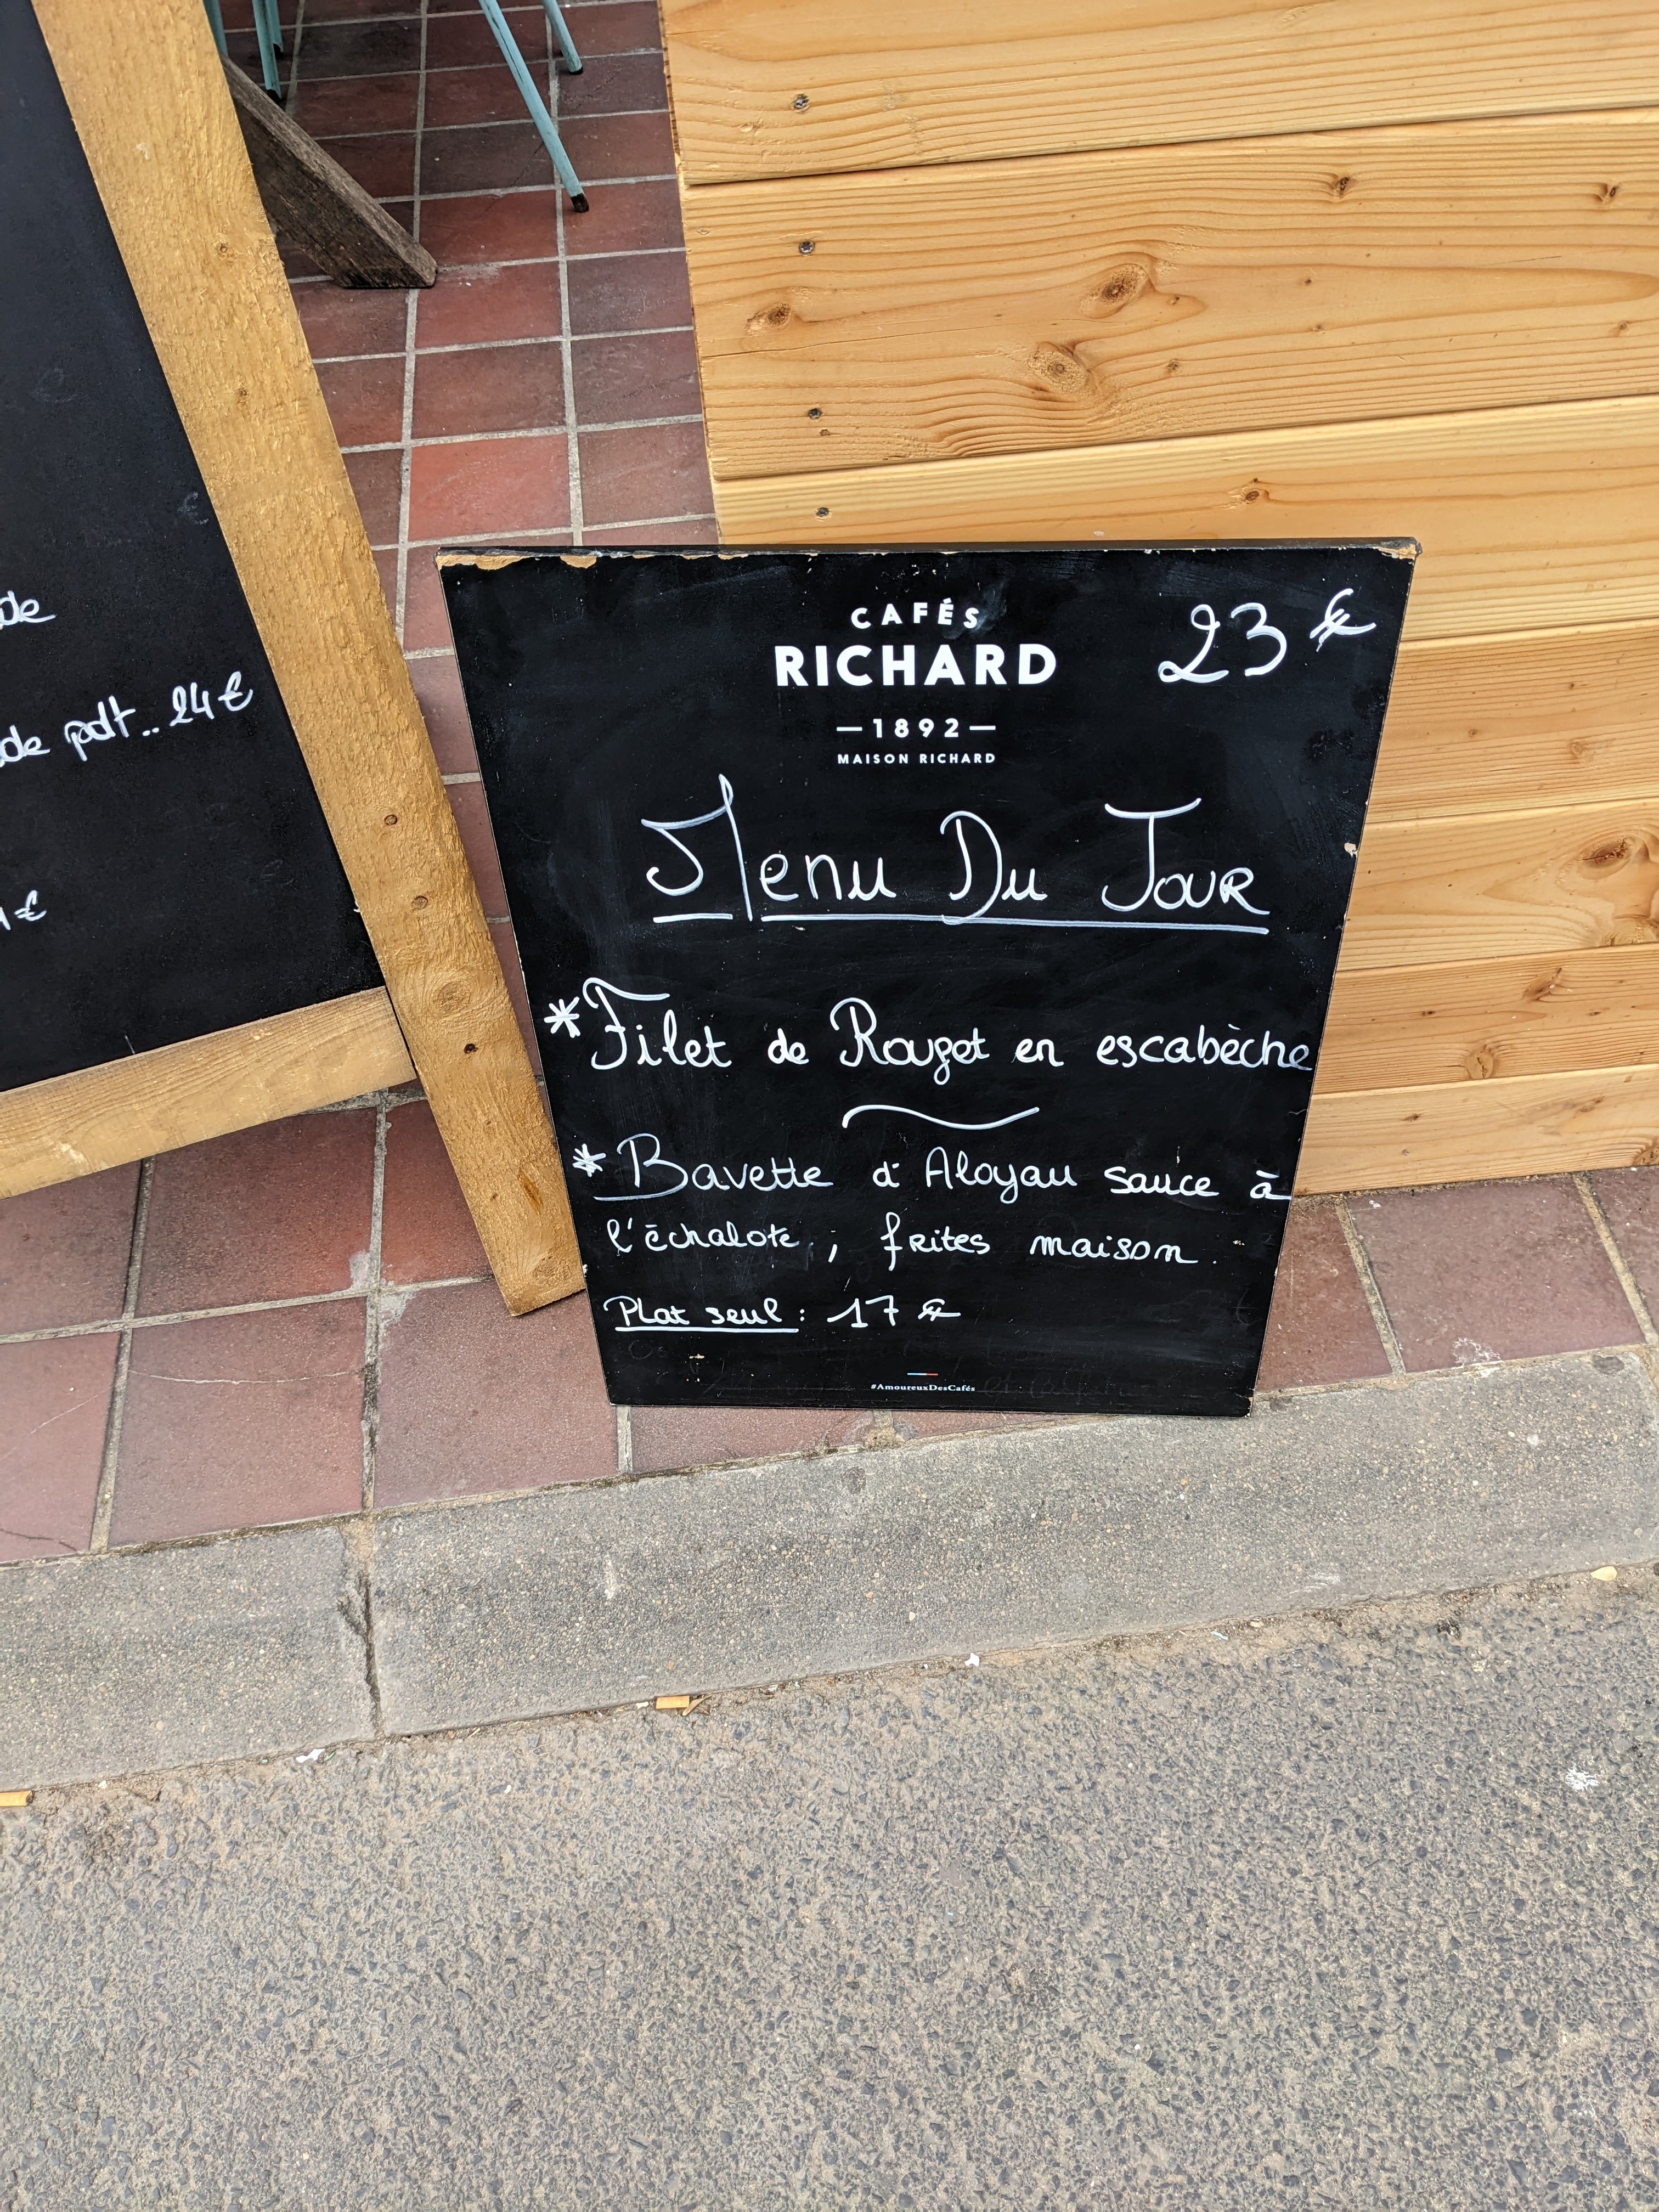 de
de part.. 24€
€
CAFÉS
RICHARD
23 €
—1892—
MAISON RICHARD
Menu Du Jour
*Filet de Rouget en escabèche
*Bavette d'Aloyau sauce à
l'échalote, ; frites maison.
Plat seul : 17 €
#AmoureuxDesCafés